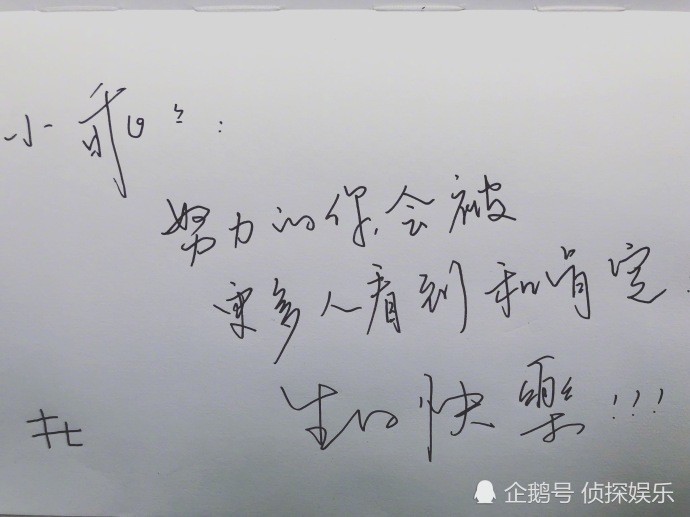 小乖乖:
努力的你,会被
更多人看到和肯定.
生日快樂!!!
企鹅号 侦探娱乐